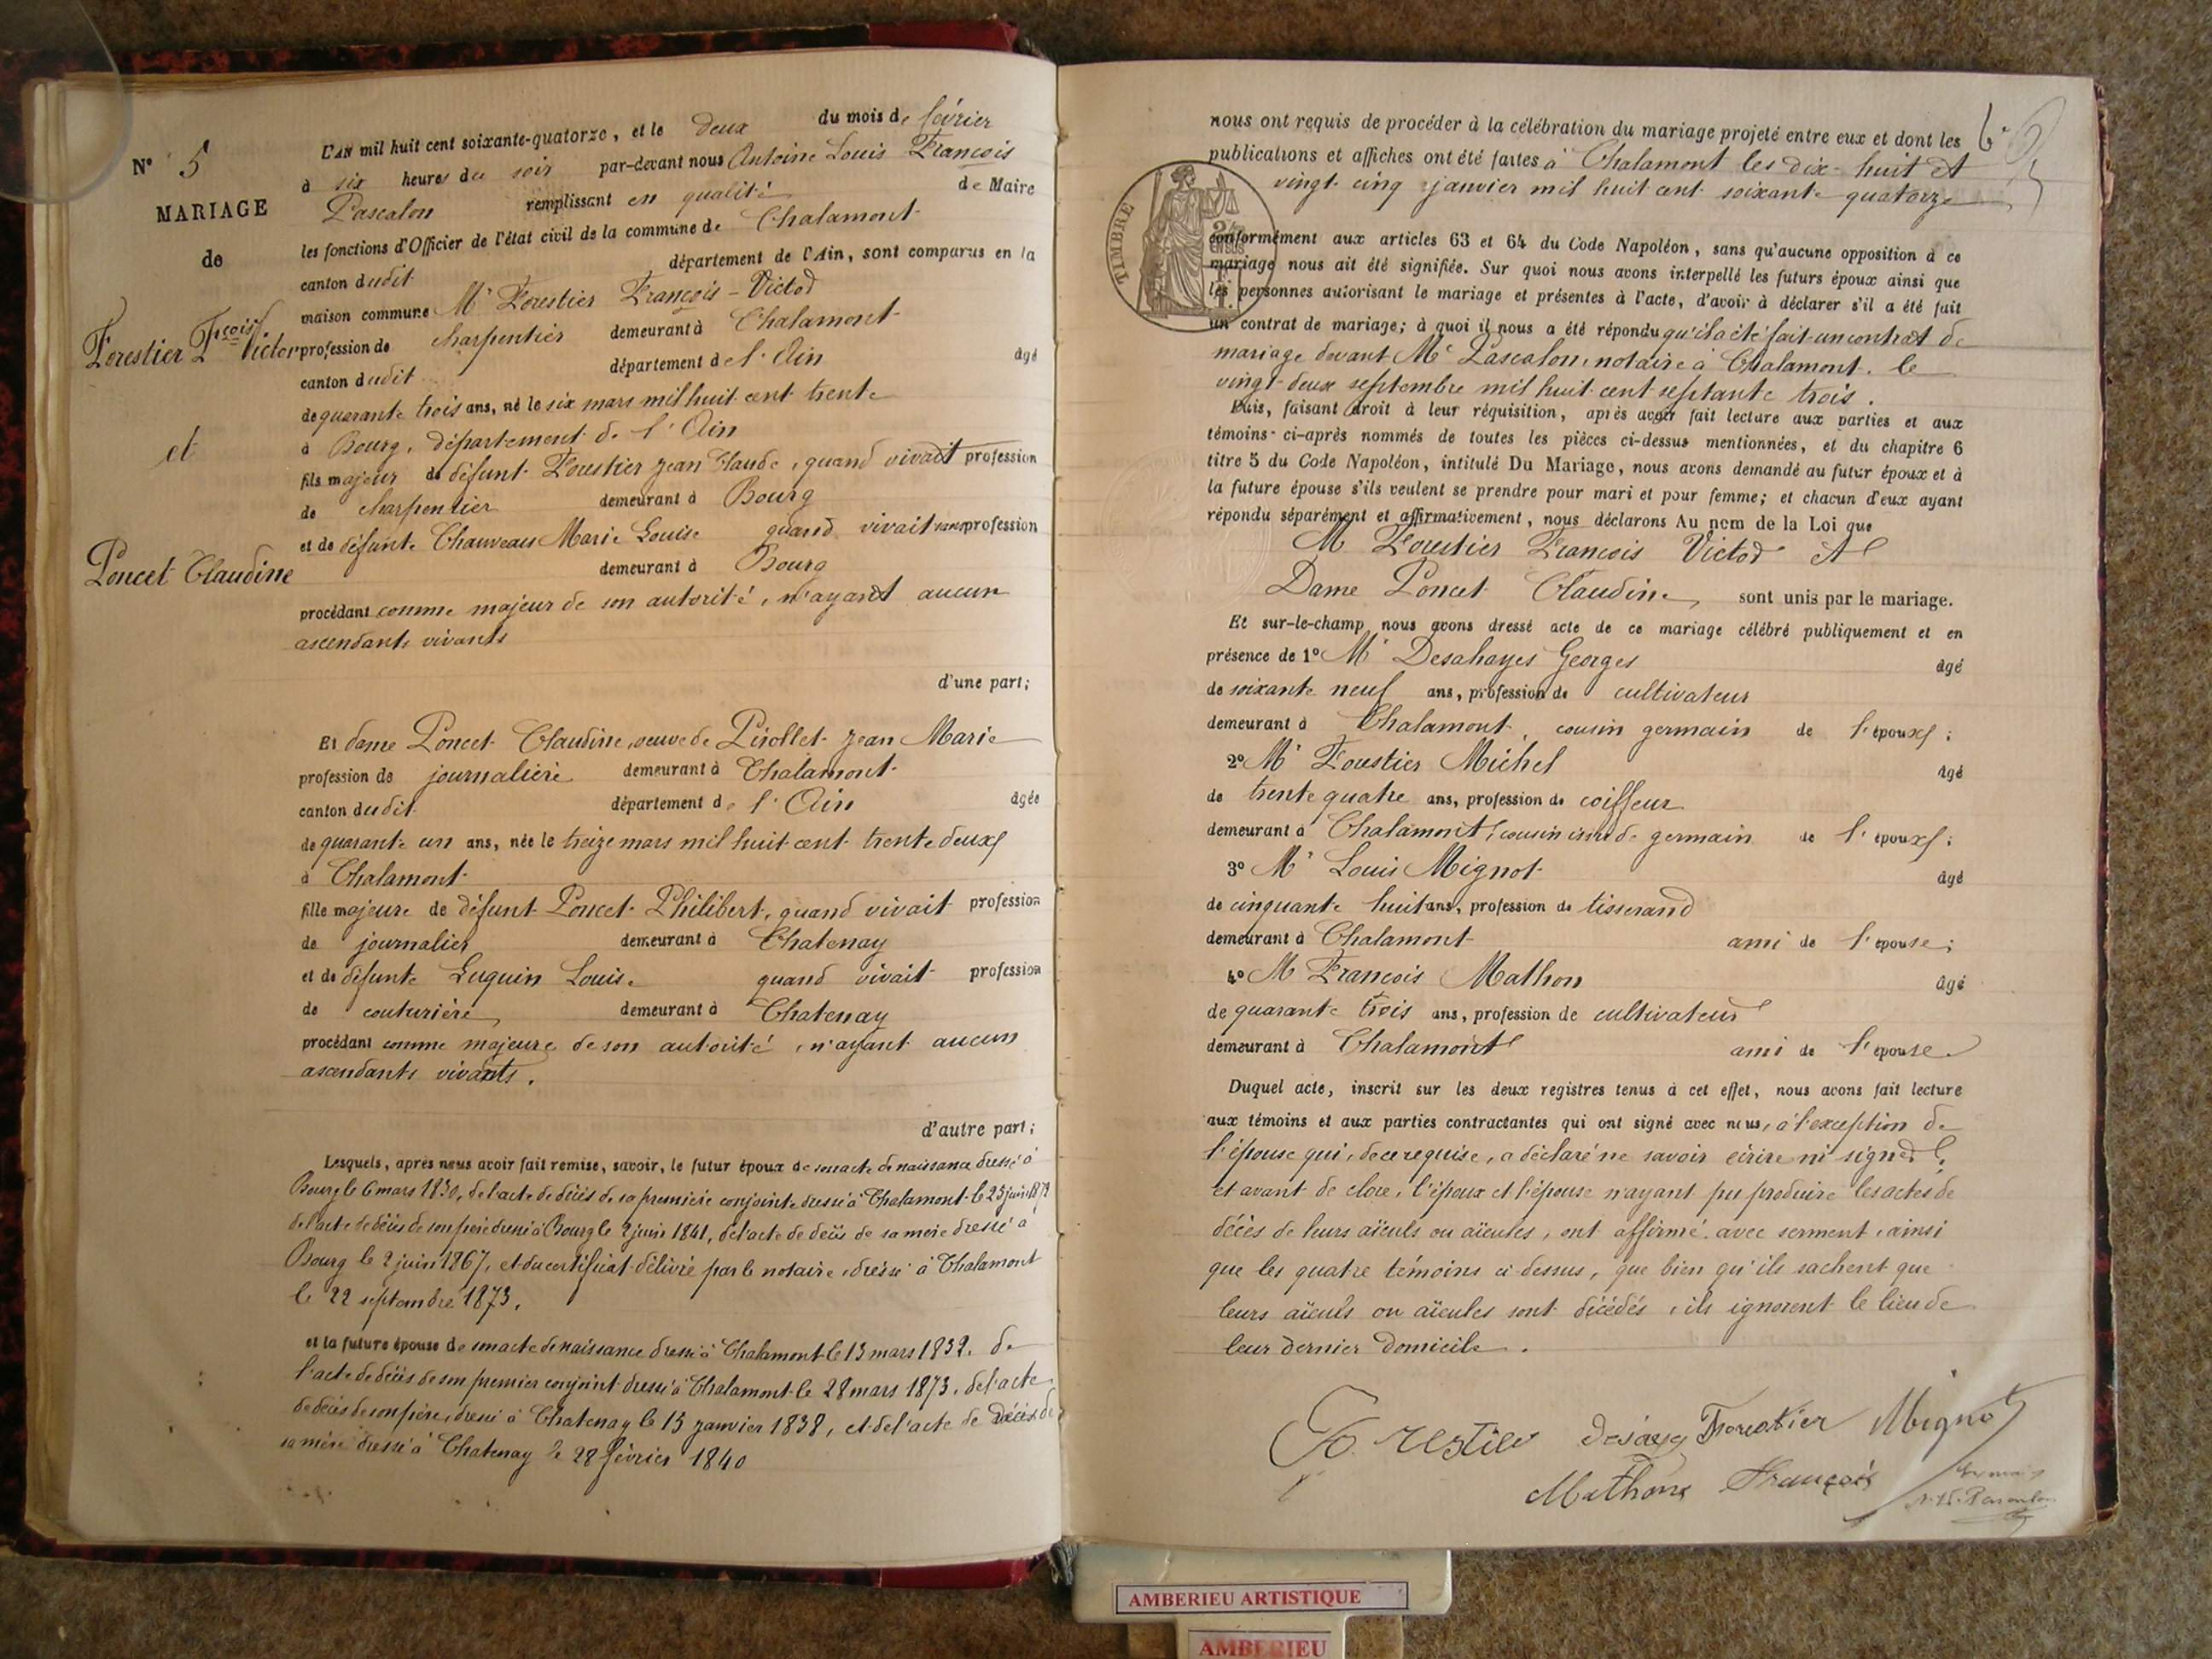 N° 5
MARIAGE
de
Forestier Fçois Victor
et
Poncet Claudine
L'AN mil huit cent soixante-quatorze, et le deux du mois de février
à six heures du soir par-devant nous Antoine Louis François
Pascalon remplissant en qualité de Maire
les fonctions d'Officier de l'état civil de la commune de Chalamont
canton dudit département de l'Ain, sont comparus en la
maison commune Mr Forestier François-Victor
profession de charpentier demeurant à Chalamont
canton dudit département de l'Ain âgé
de quarante trois ans, né le six mars mil huit cent trente
à Bourg, département de l'Ain
fils majeur de défunt Forestier Jean Claude, quand vivait profession
de charpentier demeurant à Bourg
et de défunte Chauveau Marie Louise quand vivait sans profession
demeurant à Bourg
procédant comme majeur de son autorité, n'ayant aucun
ascendants vivants
d'une part;
Et dame Poncet Claudine, veuve de Pirollet Jean Marie
profession de journalière demeurant à Chalamont
canton dudit département de l'Ain âgée
de quarante un ans, née le treize mars mil huit cent trente deux
à Chalamont
fille majeure de défunt Poncet Philibert, quand vivait profession
de journalier demeurant à Chatenay
et de défunte Luquin Louise quand vivait profession
de couturière demeurant à Chatenay
procédant comme majeure de son autorité, n'ayant aucun
ascendants vivants.
d'autre part;
Lesquels, après nous avoir fait remise, savoir, le futur époux de son acte de naissance dressé à
Bourg le 6 mars 1830, de l'acte de décès de sa première conjointe dressé à Chalamont le 25 juin
de l'acte de décès de son père dressé à Bourg le 2 juin 1841, de l'acte de décès de sa mère dressé à
Bourg le 2 juin 1867, et du certificat délivré par le notaire, dressé à Chalamont
le 22 septembre 1873.
et la future épouse de son acte de naissance dressé à Chalamont le 13 mars 1832. de
l'acte de décès de son premier conjoint dressé à Chalamont le 28 mars 1873, de l'acte
de décès de son père, dressé à Chatenay le 15 janvier 1838, et de l'acte de décès de
sa mère dressé à Chatenay le 28 février 1840
6
nous ont requis de procéder à la célébration du mariage projeté entre eux et dont les
publications et affiches ont été faites à Chalamont les dix-huit et
vingt cinq janvier mil huit cent soixante quatorze
TIMBRE
conformément aux articles 63 et 64 du Code Napoléon, sans qu'aucune opposition à ce
mariage nous ait été signifiée. Sur quoi nous avons interpellé les futurs époux ainsi que
les personnes autorisant le mariage et présentes à l'acte, d'avoir à déclarer s'il a été fait
un contrat de mariage; à quoi il nous a été répondu qu'il a été fait un contrat de
mariage devant Me Pascalon, notaire à Chalamont, le
vingt-deux septembre mil huit cent septante trois.
Puis, faisant droit à leur réquisition, après avoir fait lecture aux parties et aux
témoins ci-après nommés de toutes les pièces ci-dessus mentionnées, et du chapitre 6
titre 5 du Code Napoléon, intitulé Du Mariage, nous avons demandé au futur époux et à
la future épouse s'ils veulent se prendre pour mari et pour femme; et chacun d'eux ayant
répondu séparément et affirmativement, nous déclarons Au nom de la Loi que
M Forestier François Victor et
Dame Poncet Claudine sont unis par le mariage.
Et sur-le-champ nous avons dressé acte de ce mariage célébré publiquement et en
présence de 1° Mr Desahayes Georges âgé
de soixante neuf ans, profession de cultivateur
demeurant à Chalamont, cousin germain de l'époux;
2° Mr Forestier Michel âgé
de trente quatre ans, profession de coiffeur
demeurant à Chalamont, cousin issu de germain de l'époux;
3° Mr Louis Mignot âgé
de cinquante huit ans, profession de tisserand
demeurant à Chalamont ami de l'épouse;
4° M François Mathon âgé
de quarante trois ans, profession de cultivateur
demeurant à Chalamont ami de l'épouse.
Duquel acte, inscrit sur les deux registres tenus à cet effet, nous avons fait lecture
aux témoins et aux parties contractantes qui ont signé avec nous, à l'exception de
l'épouse qui, de ce requise, a déclaré ne savoir écrire ni signer.
et avant de clore, l'époux et l'épouse n'ayant pu produire les actes de
décès de leurs aïeuls ou aïeules, ont affirmé avec serment, ainsi
que les quatre témoins ci-dessus, que bien qu'ils sachent que
leurs aïeuls ou aïeules sont décédés, ils ignorent le lieu de
leur dernier domicile.
Forestier Forestier Mignot
Mathon François
AMBERIEU ARTISTIQUE
AMBERIEU